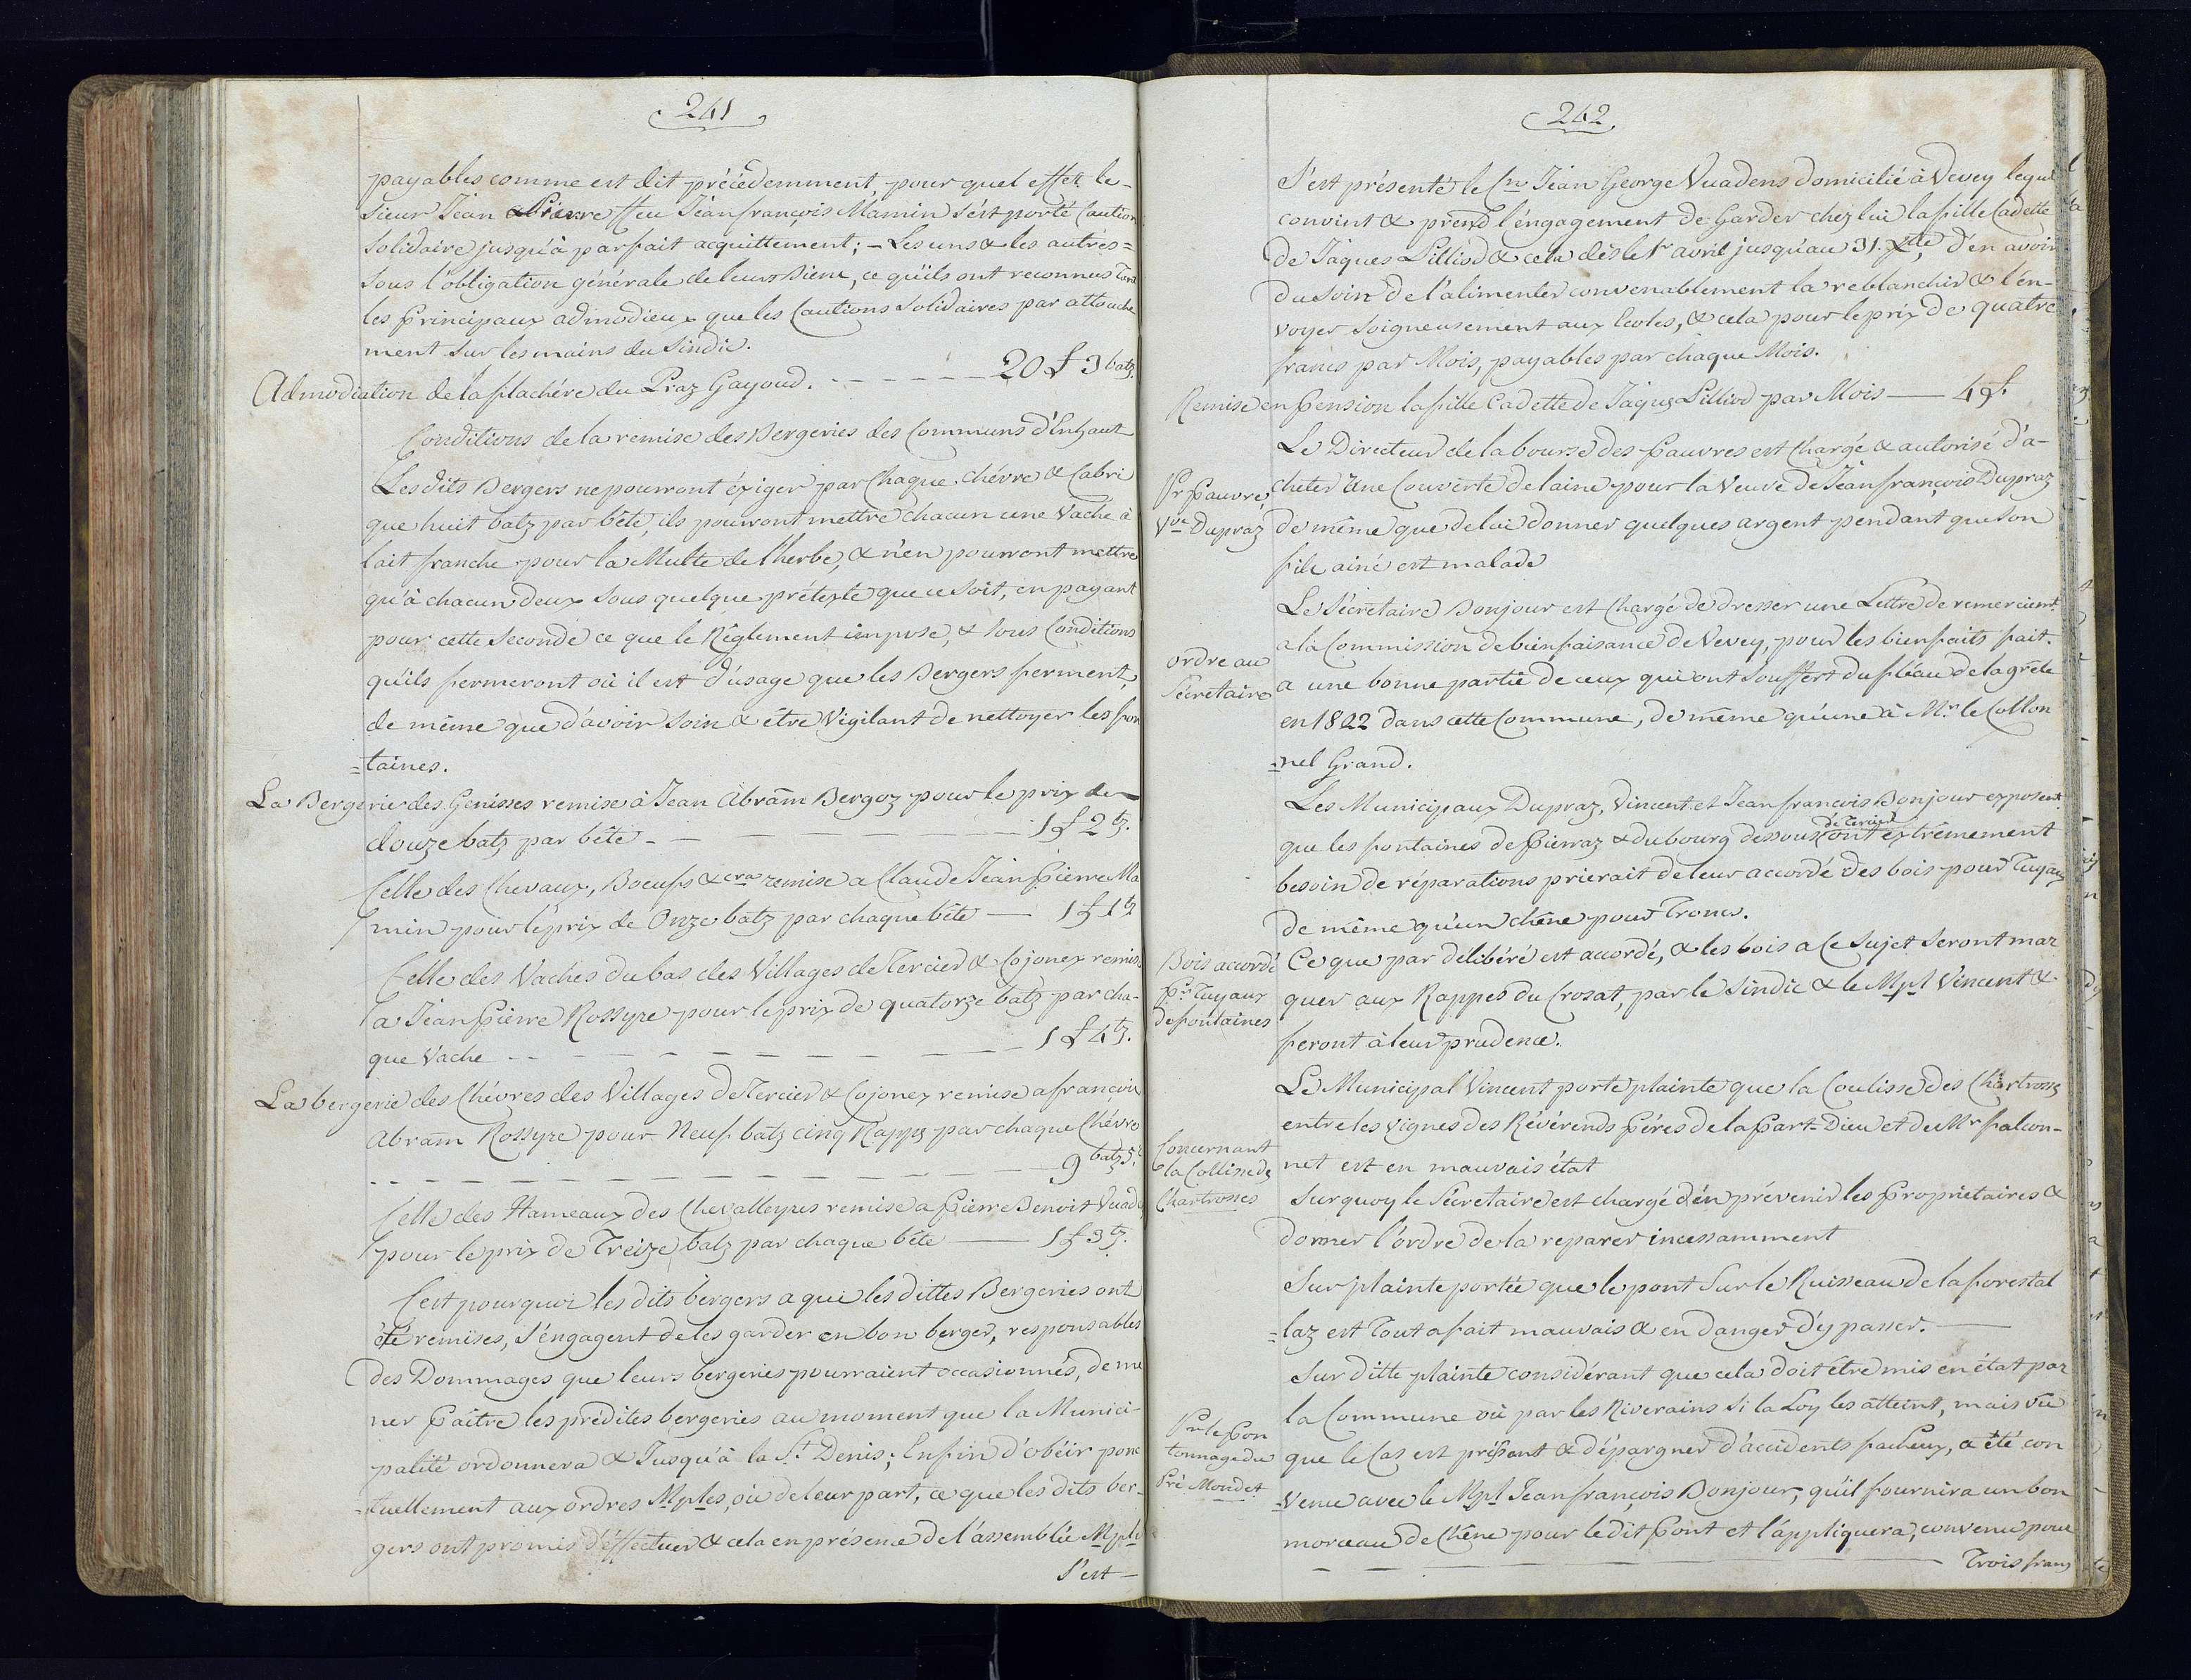 241
payables comme est dit précédemment, pour quel effet le-
Sieur Jean Pierre ffeu Jeanfrançois Mamin s'ést porté Caution
Solidaire jusqu'à parfait acquittement; - Les uns & les autres=
sous l'obligation générale de leurs Biens, ce qu'ils ont reconnus Tant
les Principaux admodieux que les Cautions Solidaires par attouche
ment sur les mains du Sindic.
Admodiation de la flachére du Praz Gayoud. - - - - - 20 f 3 batz.
Conditions de la remise des Bergeries des Communs d'Enhaut
Les dits Bergers ne pourront éxiger par Chaque chévre & Cabri
que huit batz par bête, ils pourront mettre chacun une Vache à
lait franche pour la Multe de l'herbe, & n'en pourront mettre
qu'à chacun deux sous quelque prétexte que ce soit, en payant
pour cette seconde ce que le Réglement impose, & sous Conditions
qu'ils fermeront où il est d'usage que les Bergers ferment,
de même que d'avoir soin & être Vigilant de nettoyer les fon
=taines.
La Bergerie des Genisses remise à Jean Abram Bergoz pour le prix de
douze batz par bête - - - - - 1 f 2 tz.
Celle des Chevaux, Boeufs & cra remise a Claude Jean Pierre Ma
min pour le prix de Onze batz par chaque bête — 1 f 1 tz
Celle des Vaches du bas des Villages de Tercier & Cojonex remise
a Jean Pierre Rossyre pour le prix de quatorze batz par cha-
que Vache - - - - - - - - 1 f 4 tz.
La bergerie des Chévres des Villages de Tercier & Cojonex remise a françois
Abram Rossyre pour Neuf batz cinq Rappz par chaque Chévre
- - - - - - - - - 9 batz 5 r
Celle des Hameaux des Chevalleyres remise a Pierre Benoit Vuad
pour le prix de Treize batz par chaque bête — 1 f 3 tz.
C'est pourquoi les dits bergers a qui les dittes Bergeries ont
été remises, s'éngagent de les garder en bon berger, responsables
des Dommages que leurs bergeries pourraient occasionnés, de me
ner Paître les prédites bergeries au moment que la Munici-
palité ordonnera & Jusqu'à la St. Denis; Enfin d'obéir ponc
=tuellement aux ordres Mples, où de leur part, ce que les dits ber-
gers ont promis d'éffectuer & cela en présence de l'assemblée Mple
S'est—
242
S'est présenté le Cn Jean George Vuadens domicilié à Vevey lequel
convint & prend l'éngagement de Garder chez lui la fille Cadette
de Jaques Lilliod & cela dès le 1r avril jusqu'au 31. Xbre, d'en avoir
du soin de l'alimenter convenablement la reblanchir & l'én-
voyer soigneusement aux Ecoles, & cela pour le prix de quatre
francs par Mois, payables par chaque Mois.
Remise en Pension la fille Cadette de Jaques Lilliod par Mois — 4 f.
Le Directeur de la bourse des Pauvres est Chargé & autorisé d'a-
Pr Pauvre, Vve Dupraz
cheter Une Couverte de laine pour la Veuve de Jean françois Dupraz
de même que de lui donner quelques argent pendant que son
fils ainé est malade
Le Sécretaire Bonjour est Chargé de dresser une Lettre de remercient.
ordre au Sécretaire
a la Commission de bienfaisance de Vevey, pour les bienfaits fait.
a une bonne partie de ceux qui ont souffert du fléau de la grêle
en 1822 dans cette Commune, de même qu'une à Mr. le Collon
=nel Grand.
Les Municipaux Dupraz, Vincent et Jean francois Bonjour exposent.
que les fontaines de Pierraz & du bourg dessous de Tercier ont extrêmement
besoin de réparations prierait de leur accordé des bois pour Tuyaux
de même qu'un chêne pour Troncs.
Bois accordé pr. Tuyaux de fontaines
Ce que par délibéré est accordé, & les bois a Ce sujet seront mar
quer aux Rappes du Crosat, par le Sindic & le Mpl Vincent &
feront à leur prudence.
Le Municipal Vincent porte plainte que la Coulisse des Chartross
entre les Vignes des Révérends Péres de la Part-Dieu et du Mr falcon-
Concernant la Collisse des Chartrosses
net est en mauvais état
Surquoy le Sécretaire est chargé d'én prévenir les Propriétaires &
donner l'ordre de la reparer incessamment
Sur plainte portée que le pont sur le Ruisseau de la forestal
=laz est Tout a fait mauvais & en danger d'y passer. —
Sur ditte plainte considérant que cela doit être mis en état par
la Commune où par les Riverains Si la Loy les atteint, mais vû
Pr le Pon tonnage du Pré Mondet
que le Cas est préssant & d'épargner d'accidents facheux, a été con
=venu avec le Mpl Jean françois Bonjour, qu'il fournira un bon
morceau de Chêne pour le dit Pont et l'appliquera, convenu pour
- - ———— Trois francs